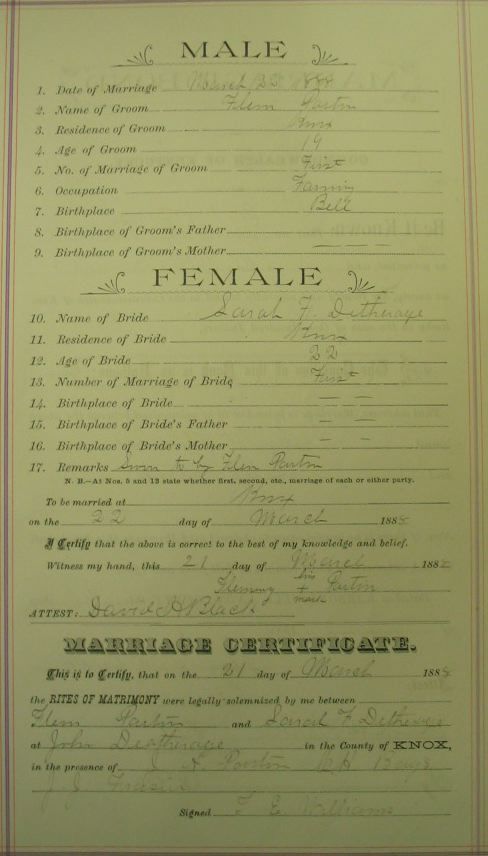 MALE
1. Date of Marriage March 22 1888
2. Name of Groom Flem Partin
3. Residence of Groom Knox
4. Age of Groom 19
5. No. of Marriage of Groom First
6. Occupation Farming
7. Birthplace Bell
8. Birthplace of Groom's Father
9. Birthplace of Groom's Mother — — —
FEMALE
10. Name of Bride Sarah F. Detherage
11. Residence of Bride Knox
12. Age of Bride 22
13. Number of Marriage of Bride First
14. Birthplace of Bride — —
15. Birthplace of Bride's Father — —
16. Birthplace of Bride's Mother - -
17. Remarks Sworn to by Flem Partin
N. B.—At Nos. 5 and 13 state whether first, second, etc., marriage of each or either party.
To be married at Knox
on the 22 day of March 1888
I Certify that the above is correct to the best of my knowledge and belief.
Witness my hand, this 21 day of March 1888
Fleming his + mark Partin
ATTEST: David H Black
MARRIAGE CERTIFICATE.
This is to Certify, that on the 21 day of March 1888
the RITES OF MATRIMONY were legally solemnized by me between
Flem Partin and Sarah F Detherage
at John Deatherage in the County of KNOX,
in the presence of J. H. Partin W. H.
J. J.
Signed E. Williams